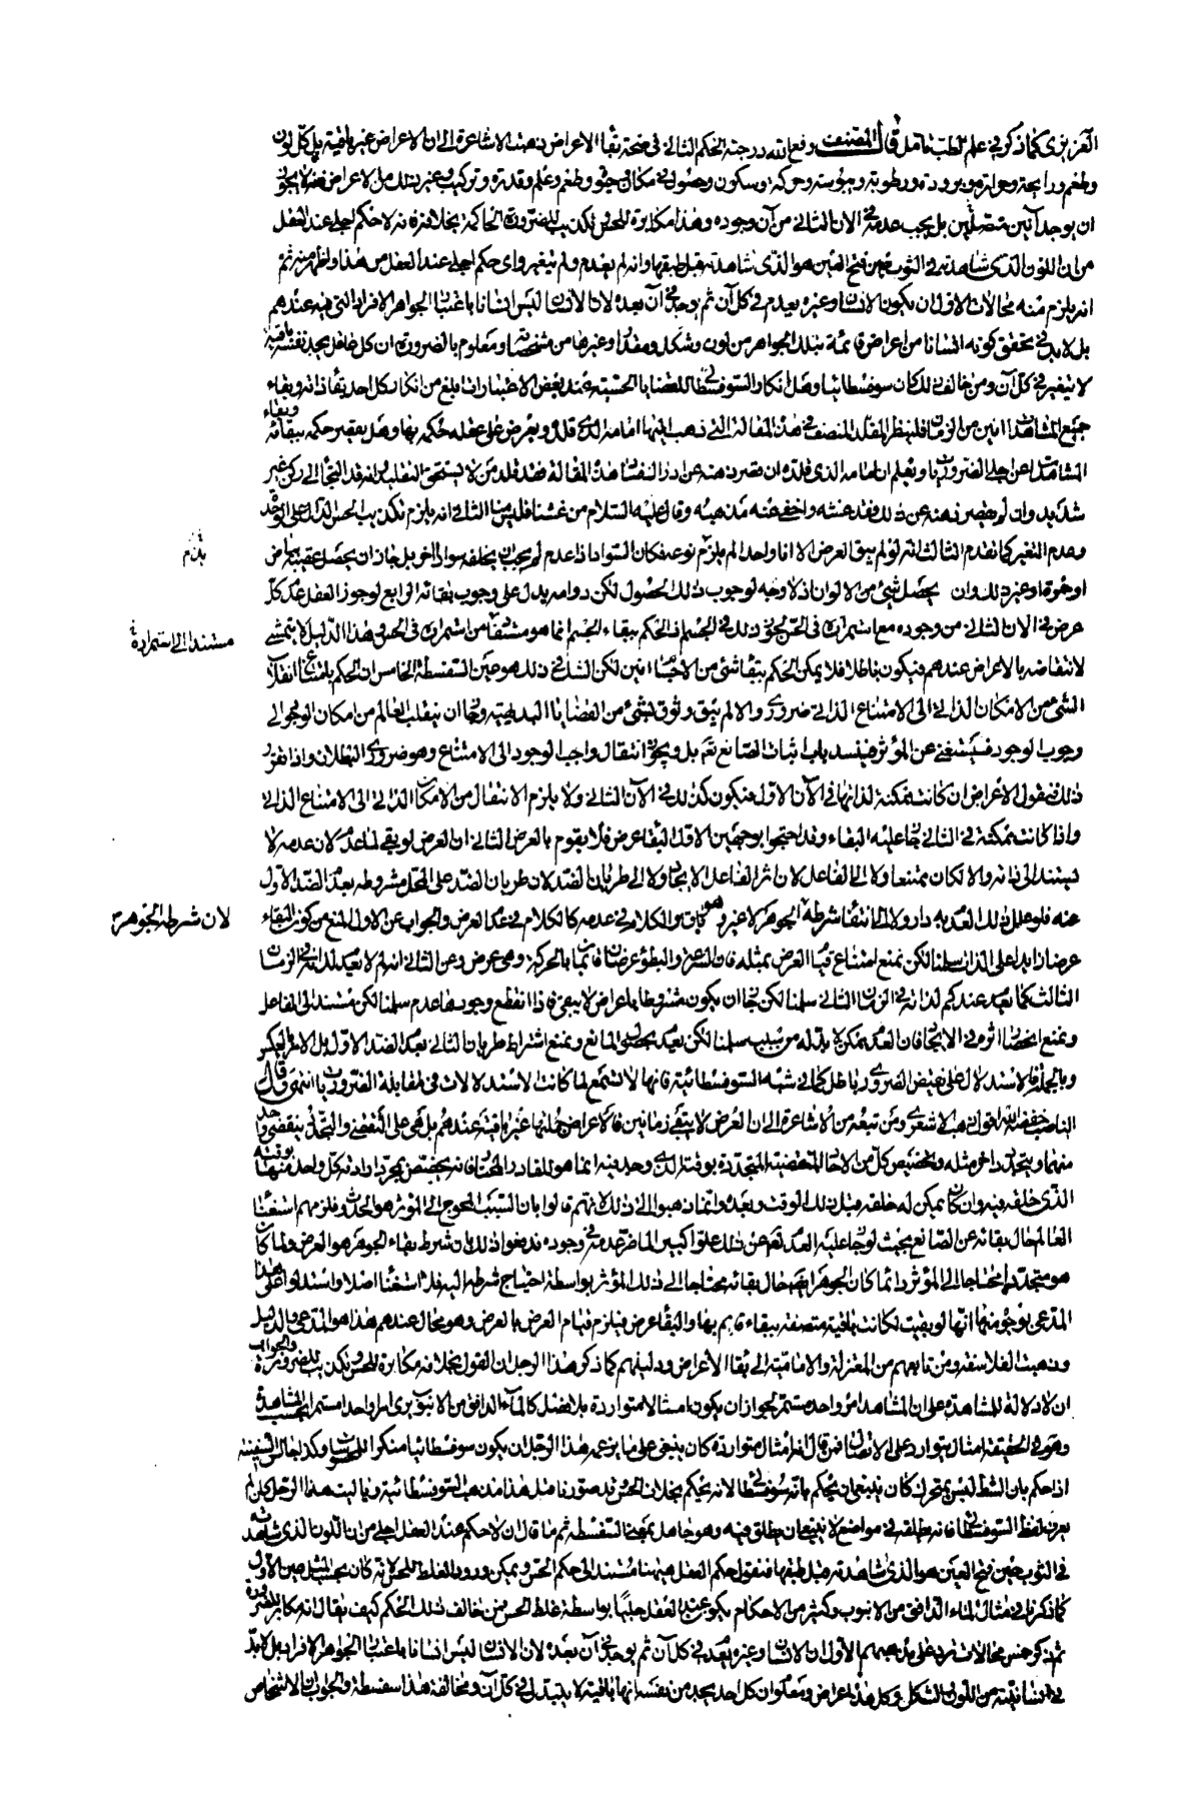 الغريزي كما ذكر في علم الطب تأمل قال المصنف رفع الله درجته الحكم الثاني في صحة بقاء الاعراض ذهبت الاشاعرة الى ان الاعراض غير باقية بل كل لون
وطعم ورايحة وحرارة وبرودة ورطوبة ويبوسة وحركة وسكون وحصول في مكان وحيوة وطعم وعلم وقدرة وتركيب وغير ذلك من الاعراض فانه لا يجوز
ان يوجد آنين متصلين بل يجب عدمه في الان الثاني من آن وجوده وهذا مكابرة للحس وتكذيب للضرورة الحاكمة بخلافه فانه لا حكم اجلى عند العقل
من ان اللون الذي شاهدته في الثوب حين فتح العين هو الذي شاهدته قبل طبقها وانه لم يعدم ولم يتغير واي حكم اجلى عند العقل من هذا واظهر منه ثم
انه يلزم منه محالات الاول ان يكون الانسان وغيره يعدم في كل آن ثم يوجد في آن بعده لان الانسان ليس انسانا باعتبار الجواهر الافراد التي فيه عندهم
بل لابد في تحقق كونه انسانا من اعراض قائمة بتلك الجواهر من لون وشكل ومقدار وغيرها من مشخصاته ومعلوم بالضرورة ان كل عاقل يجد نفسه باقية
لا يتغير في كل آن ومن خالف ذلك كان سوفسطائيا وهل انكار السوفسطائي للقضايا الحسية عند بعض الاعتبارات ابلغ من انكار كل احد بقاء ذاته وبقاء
جميع المشاهدات آنين من الزمان فلينظر المقلد المنصف في هذه المقالة التي ذهب اليها امامه الذي قلده ويعرض على عقله حكمه بها وهل يقصر حكمه ببقائه وبقاء
المشاهدات عن اجلى الضروريات ويعلم ان امامه الذي قلده ان قصر ذهنه عن ادراك فساد هذه المقالة فقد قلد من لا يستحق التقليد وانه قد التجأ الى ركن غير
شديد وان لم يقصر ذهنه عن ذلك فقد غشه واخفى عنه مذهبه وقال عليه السلام من غشنا فليس منا الثاني انه يلزم تكذيب الحس الدال على الوحدة
وعدم التغير كما تقدم الثالث انه لو لم يبق العرض الا آنا واحدا لم يلزم نوعه فكان السواد اذا عدم لم يجب ان يخلفه سواد آخر بل جاز ان يحصل عقيبه بياض
او حمرة او غير ذلك وان يحصل شيء من الالوان اذ لا وجه لوجوب ذلك الحصول لكن دوامه يدل على وجوب بقائه الرابع لو جوز العقل عدم كل
يلزم
عرض في الان الثاني من وجوده مع استمراره في الحس لجوز ذلك في الجسم اذ الحكم ببقاء الجسم انما هو مستفاد من استمراره في الحس وهذا الدليل لا يتمشى
مستندا الى استمراره
لانتقاضه بالاعراض عندهم فيكون باطلا فلا يمكن الحكم ببقاء شيء من الاجسام آنين لكن الشك في ذلك هو عين السفسطة الخامس ان الحكم بامتناع انقلاب
الشيء من الامكان الذاتي الى الامتناع الذاتي ضروري والا لم يبق وثوق بشيء من القضايا البديهية وجاز ان ينقلب العالم من امكان الوجود الى
وجوب الوجود فيستغني عن المؤثر فينسد باب اثبات الصانع تعم بل ويجوز انتقال واجب الوجود الى الامتناع وهو ضروري البطلان واذا تقرر
ذلك فنقول الاعراض ان كانت ممكنة لذاتها في الآن الاول فيكون كذلك في الآن الثاني ولا يلزم الانتقال من الامكان الذاتي الى الامتناع الذاتي
واذا كانت ممكنة في الثاني جاز عليه البقاء وقد احتجوا بوجهين الاول البقاء عرض فلا يقوم بالعرض الثاني ان العرض لو بقي لما عدم لان عدمه لا
يستند الى ذاته والا لكان ممتنعا ولا الى الفاعل لان اثر الفاعل الايجاد ولا الى طريان الضد لان طريان الضد على المحل مشروط بعدم الضد الاول
عنه فلو علل ذلك العدم به دار ولا الى انتفاء شرطه لان شرطه الجوهر لا غير وهو باق والكلام في عدمه كالكلام في عدم العرض والجواب عن الاول المنع من كون البقاء
لان شرطه الجوهر
عرضا زايدا على الذات سلمنا لكن نمنع امتناع قيام العرض بمثله فان السرعة والبطؤ عرضان قائمان بالحركة وهي عرض وعن الثاني انه لم لا يعدم لذاته في الزمان
الثالث كما يعدم عندكم لذاته في الزمان الثاني سلمنا لكن جاز ان يكون مشروطا باعراض لا يبقى فاذا انقطع وجودها عدم سلمنا لكن مستند الى الفاعل
ونمنع انحصار اثره في الايجاد فان العدم ممكن لا بد له من سبب سلمنا لكن يعدم بحصول المانع ونمنع اشتراط طريان الثاني بعدم الضد الاول بل الامر بالعكس
وبالجملة فالاستدلال على نقيض الضروري باطل كما في شبه السوفسطائية فانها لا تسمع لما كانت الاستدلالات في مقابلة الضروريات انتهى وقال
الناصب خفضه الله اقول ذهب الاشعري ومن تبعه من الاشاعرة الى ان العرض لا يبقى زمانين فالاعراض جملتها غير باقية عندهم بل هي على التقضي والتجدد ينقضي واحد
منها ويتجدد آخر مثله وتخصيص كل من الاحاد المتقضية المتجددة بوقته الذي وجد فيه انما هو للقادر المختار فانه يخصص بمجرد ارادته كل واحد منها بوقته
الذي خلقه فيه وان كان يمكن له خلقه قبل ذلك الوقت وبعده وانما ذهبوا الى ذلك لانهم قالوا بان السبب المحوج الى المؤثر هو الحدوث فلزمهم استغناء
العالم حال بقائه عن الصانع بحيث لو جاز عليه العدم تعم عن ذلك علوا كبيرا لما ضر عدمه في وجوده فدفعوا ذلك بان شرط بقاء الجوهر هو العرض ولما كان
هو متجددا محتاجا الى المؤثر دائما كان الجوهر ايضا حال بقائه محتاجا الى ذلك المؤثر بواسطة احتياج شرطه اليه فلا استغناء اصلا واستدلوا على هذا
المدعى بوجوه منها انها لو بقيت لكانت باقية متصفة ببقاء قايم بها والبقاء عرض فيلزم قيام العرض بالعرض وهو محال عندهم هذا هو المدعى والدليل
وذهبت الفلاسفة ومن تابعهم من المعتزلة والامامية الى بقاء الاعراض ودليلهم كما ذكر هذا الرجل ان القول بخلافه مكابرة للحس وتكذيب للضرورة والجواب
ان لا دلالة للمشاهدة على ان المشاهد امر واحد مستمر لجواز ان يكون امثالا متواردة بلا فصل كالماء الدافق من الانبوب يرى امرا واحدا مستمرا بحسب المشاهدة
وهو في الحقيقة امثال يتوارد على الاتصال فمن قال انه امثال متواردة كان ينبغي على ما يزعمه هذا الرجل ان يكون سوفسطائيا منكرا للمحسوسات وكذا جالس السفينة
اذا حكم بان الشط ليس بمتحرك كان ينبغي ان يحكم بانه سوفسطائي لانه يحكم بخلاف الحس وقد صورنا مثل هذا مذهب السوفسطائية ويا ليت هذا الرجل كان لم
يعرف لفظ السوفسطائي فانه يطلقه في مواضع لا ينبغي ان يطلق فيه وهو جاهل بمعنى السفسطة ثم ما قال ان لا حكم عند العقل اجلى من ان اللون الذي شاهدته
في الثوب حين فتح العين هو الذي شاهدته قبل طبقها فنقول حكم العقل هيهنا مستند الى حكم الحس ويمكن ورود الغلط للحس لانه كان يحسب المثل عين الاول
كما ذكرنا في مثال الماء الدافق من الانبوب وكثير من الاحكام يكون عند العقل جليا بواسطة غلط الحس فمن خالف ذلك الحكم كيف يقال انه مكابر للضرورة
ثم ذكر خمس محالات ترد على مذهبهم الاول ان الانسان وغيره يعدم في كل آن ثم يوجد في آن بعده لان الانسان ليس انسانا باعتبار الجواهر الافراد بل لابد
في انسانيته من اللون والشكل وكل هذه اعراض ومعلوم ان كل احد يجد من نفسه انها باقية لا يتبدل في كل آن ومخالفة هذا سفسطة والجواب ان الاشخاص